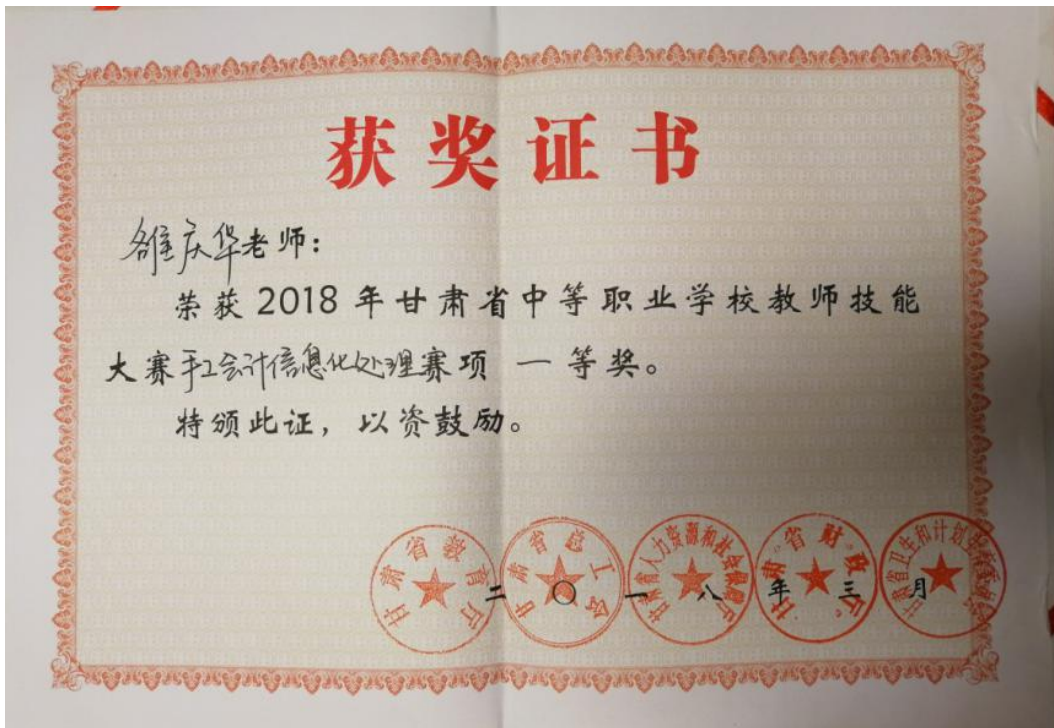 获奖证书
雒庆华老师：
荣获2018年甘肃省中等职业学校教师技能
大赛手工会计信息化处理赛项 一等奖。
特颁此证，以资鼓励。
甘肃省教育厅
甘肃省总工会
甘肃省人力资源和社会保障厅
甘肃省财政厅
甘肃省卫生和计划生育委员会
二〇一八年三月